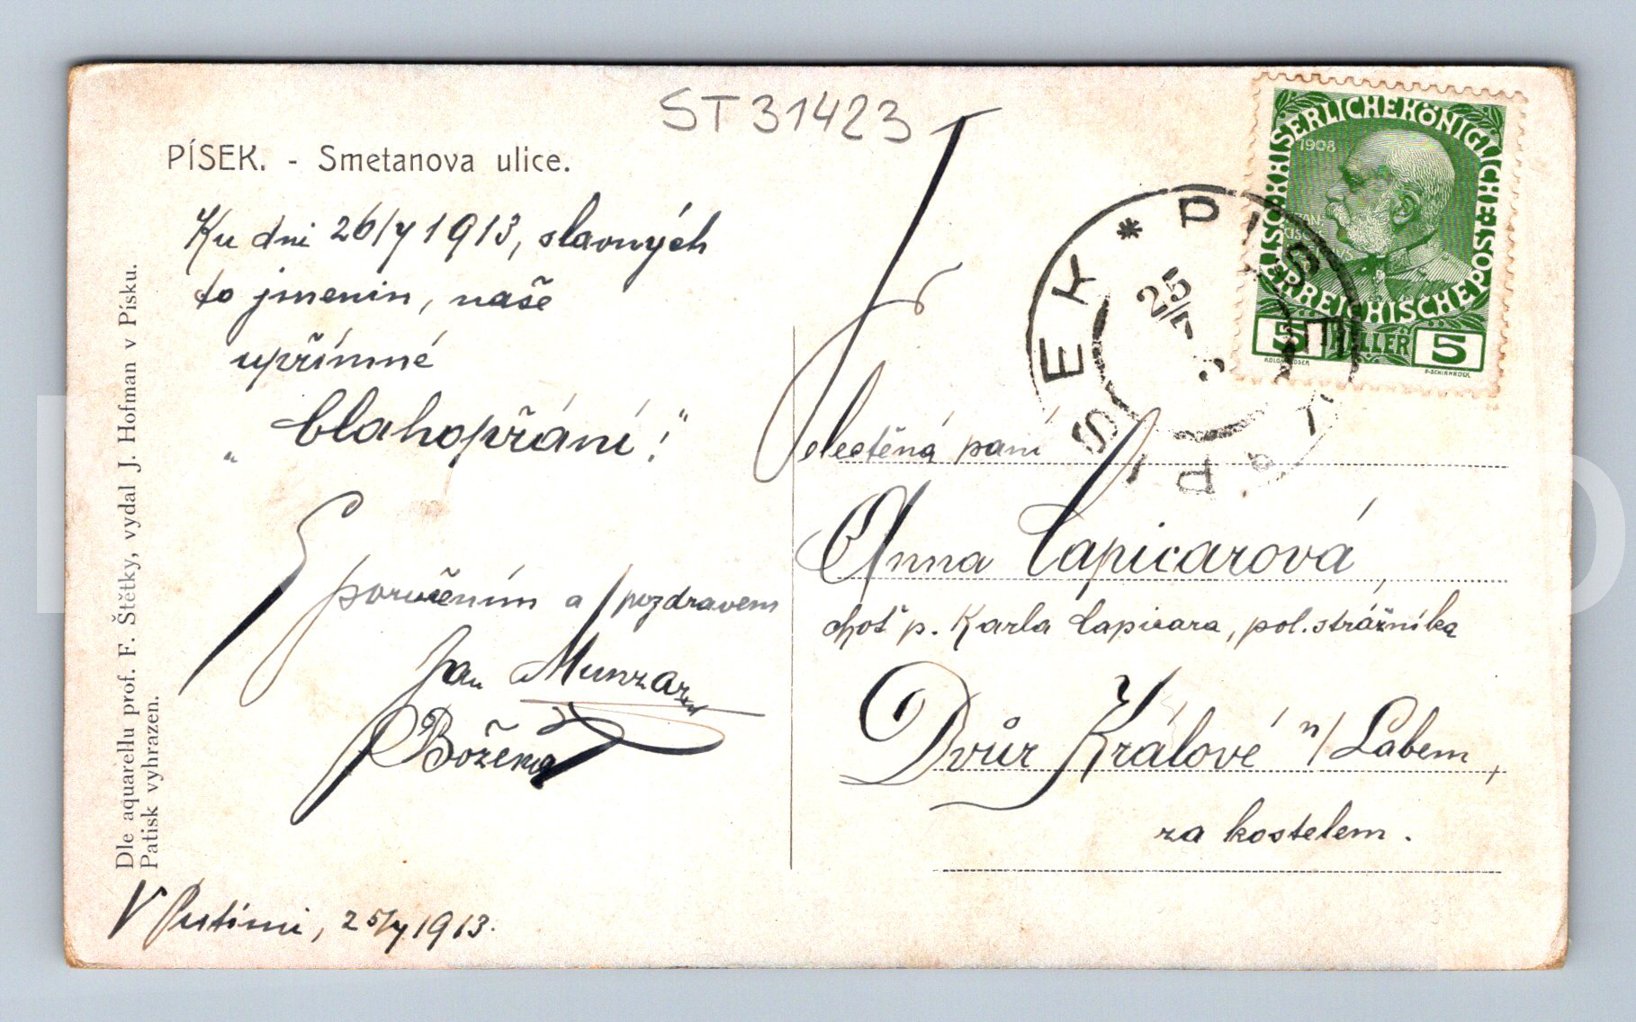 ST31423
PÍSEK. - Smetanova ulice.
Ku dni 26/7 1913, slavných
to jmenin, naše
upřímné
„blahopřání!"
S poručením a pozdravem
Jan Munzar
Božena
V Putimi, 25/7 1913.
Dle aquarellu prof. F. Štětky, vydal J. Hofman v Písku.
Patisk vyhrazen.
KAISERLICHE KÖNIGLICHE ÖSTERREICHISCHE POST
1908
5 HELLER 5
PISEK * PÍSEK
25/7
Velectěná paní
Anna Capicarová,
choť p. Karla Capicara, pol. strážníka
Dvůr Králové n/Labem,
za kostelem.